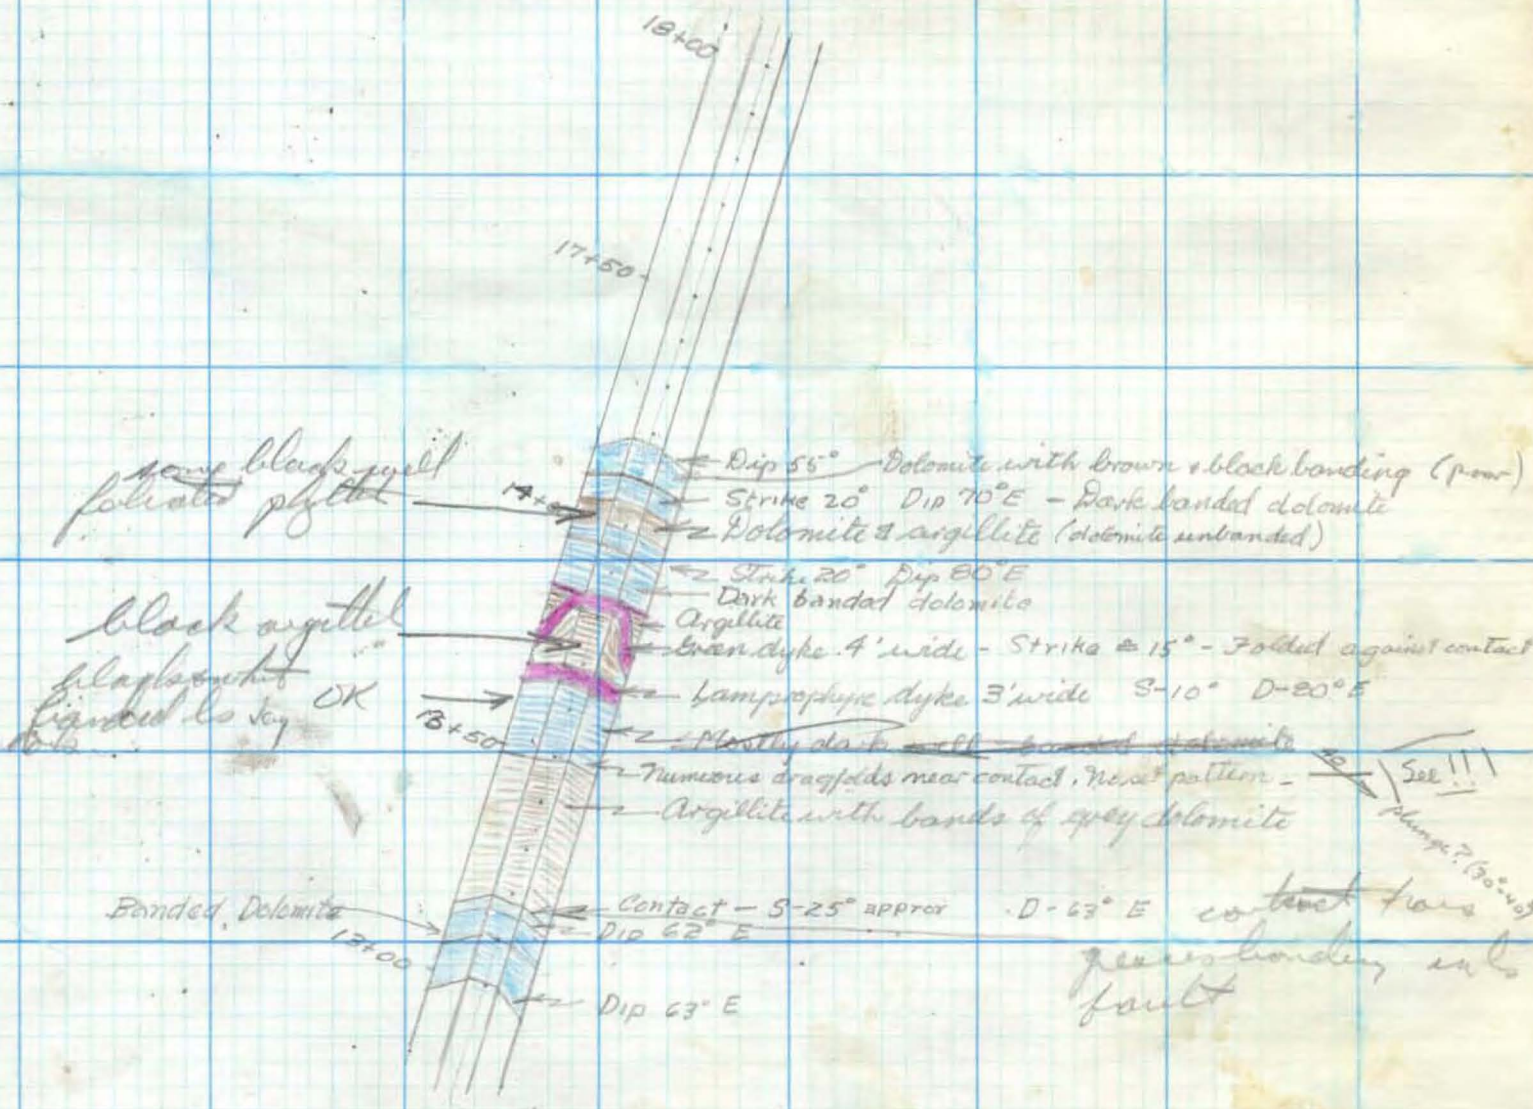 18+00
17+50
some black well
foliated
14+00
Dip 55° Dolomite with brown & black banding (poor)
Strike 20° Dip 70°E - Dark banded dolomite
Dolomite & argillite (dolomite unbanded)
Strike 20° Dip 80°E
Dark banded dolomite
Argillite
black
Green dyke 4' wide - Strike 15° - Folded against contact
Lamprophyre dyke 3' wide S-10° D-80°E
OK
13+50
Mostly dark well banded dolomite
Numerous dragfolds near contact. pattern -
See !!!
plunge? (30°-40°)
Argillite with bands of grey dolomite
Banded Dolomite
Contact - S-25° approx D-63° E
Dip 62° E
13+00
fault
Dip 63° E